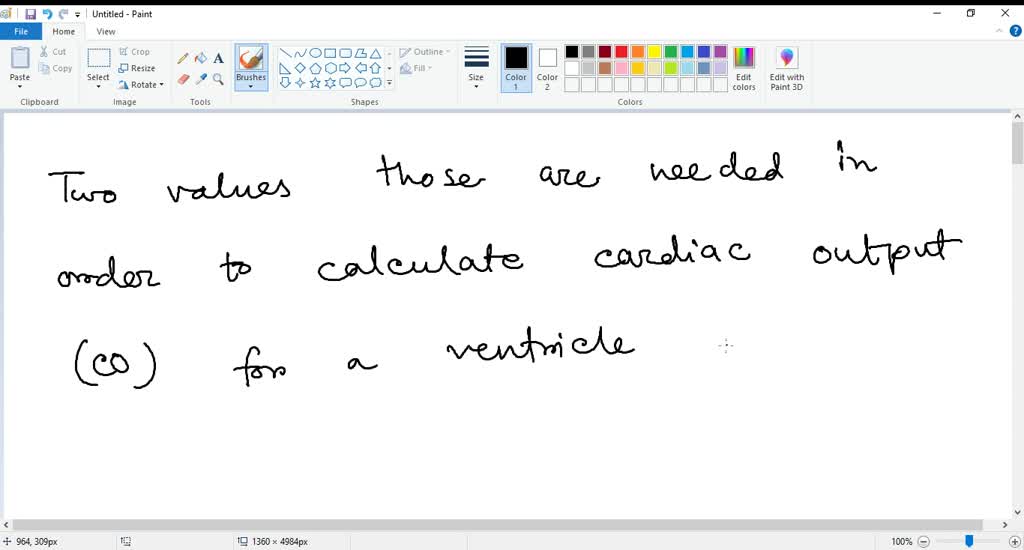 Untitled - Paint
File Home View
Cut Crop Outline
Copy Resize Fill
Paste Select Rotate Brushes Size Color 1 Color 2 Edit colors Edit with Paint 3D
Clipboard Image Tools Shapes Colors
Two values those are needed in
order to calculate cardiac output
(CO) for a ventricle
964, 309px 1360 × 4984px 100%